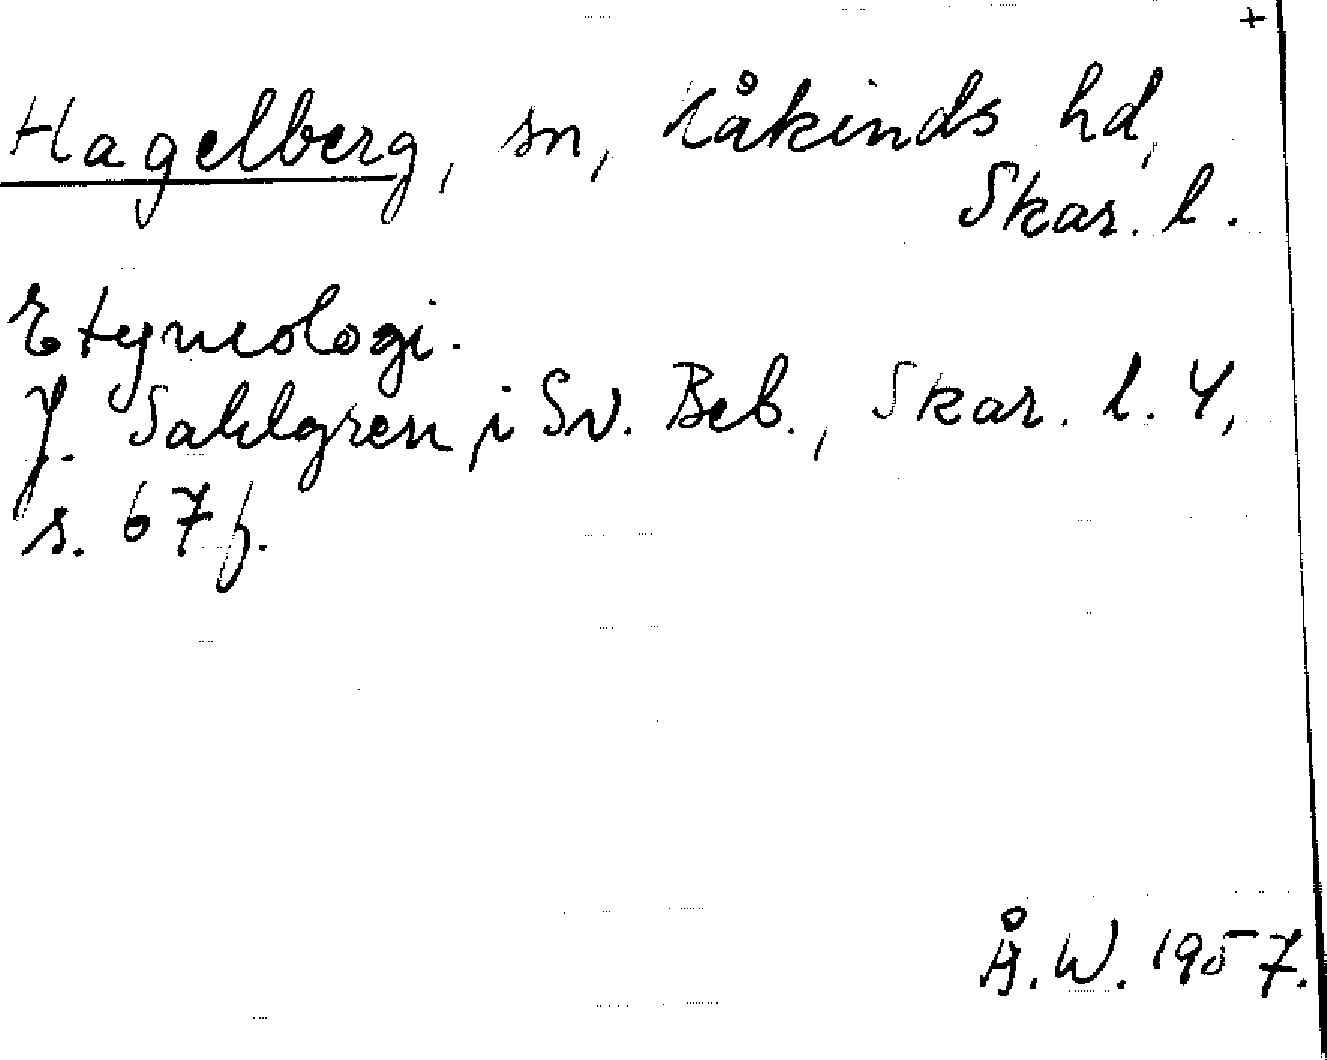 +
Hagelberg, sn, Kåkinds hd,
Skar. l.
Etymologi.
J. Sahlgren, i Sv. Beb., Skar. l. 4,
s. 67 f.
Å. W. 1957.